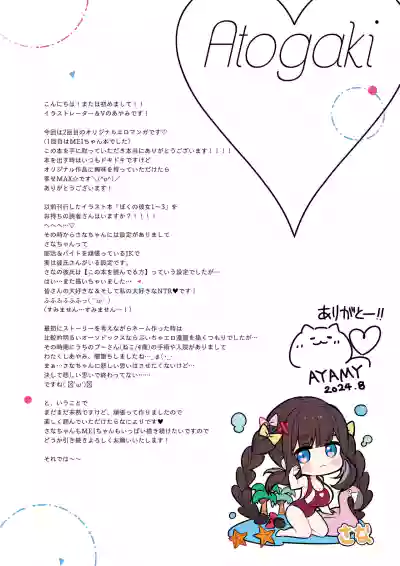 Atogaki
こんにちは！または初めまして！！
イラストレーター＆Vのあやみです！
今回は2冊目のオリジナルエロマンガです♡
(1冊目はMEIちゃん本でした)
この本を手に取っていただき本当にありがとうございます！！！！
本を出す時はいつもドキドキですけど
オリジナル作品に興味を持っていただけたら
幸せMAX☆です＼(^o^)／
ありがとうございます！
以前刊行したイラスト本「ぼくの彼女1〜3」を
お持ちの読者さんはいますか？！！！！
へへへ…♡
その時からさなちゃんには設定がありまして
さなちゃんって
部活＆バイトを頑張っているJKで
実は彼氏さんがいる設定です。
さなの彼氏は【この本を読んでる方】っていう設定でしたが…
はい…また描いちゃいました…
皆さんの大好きな＆そして私の大好きなNTR♥です！
ふふふふふふっ
(すみません…すみません…！)
最初にストーリーを考えながらネーム作った時は
比較的明るいオーソドックスならぶいちゃエロ漫画を描くつもりでしたが…
その時期にうちのプーさん(ねこ/4歳)の手術や入院がありまして
わたくしあやみ、闇堕ちしましたね…
まぁ…さなちゃんに悲しい思いはさせたくないけど…
決して悲しい思いで終わってない……
ですね(
と、いうことで
まだまだ未熟ですけど、頑張って作りましたので
楽しく読んでいただけたらなによりです♥
さなちゃんもMEIちゃんもいっぱい描き続けたいですので
どうか引き続きよろしくお願いいたします！
それでは〜〜
ありがとー!!
AYAMY
2024.8
さな